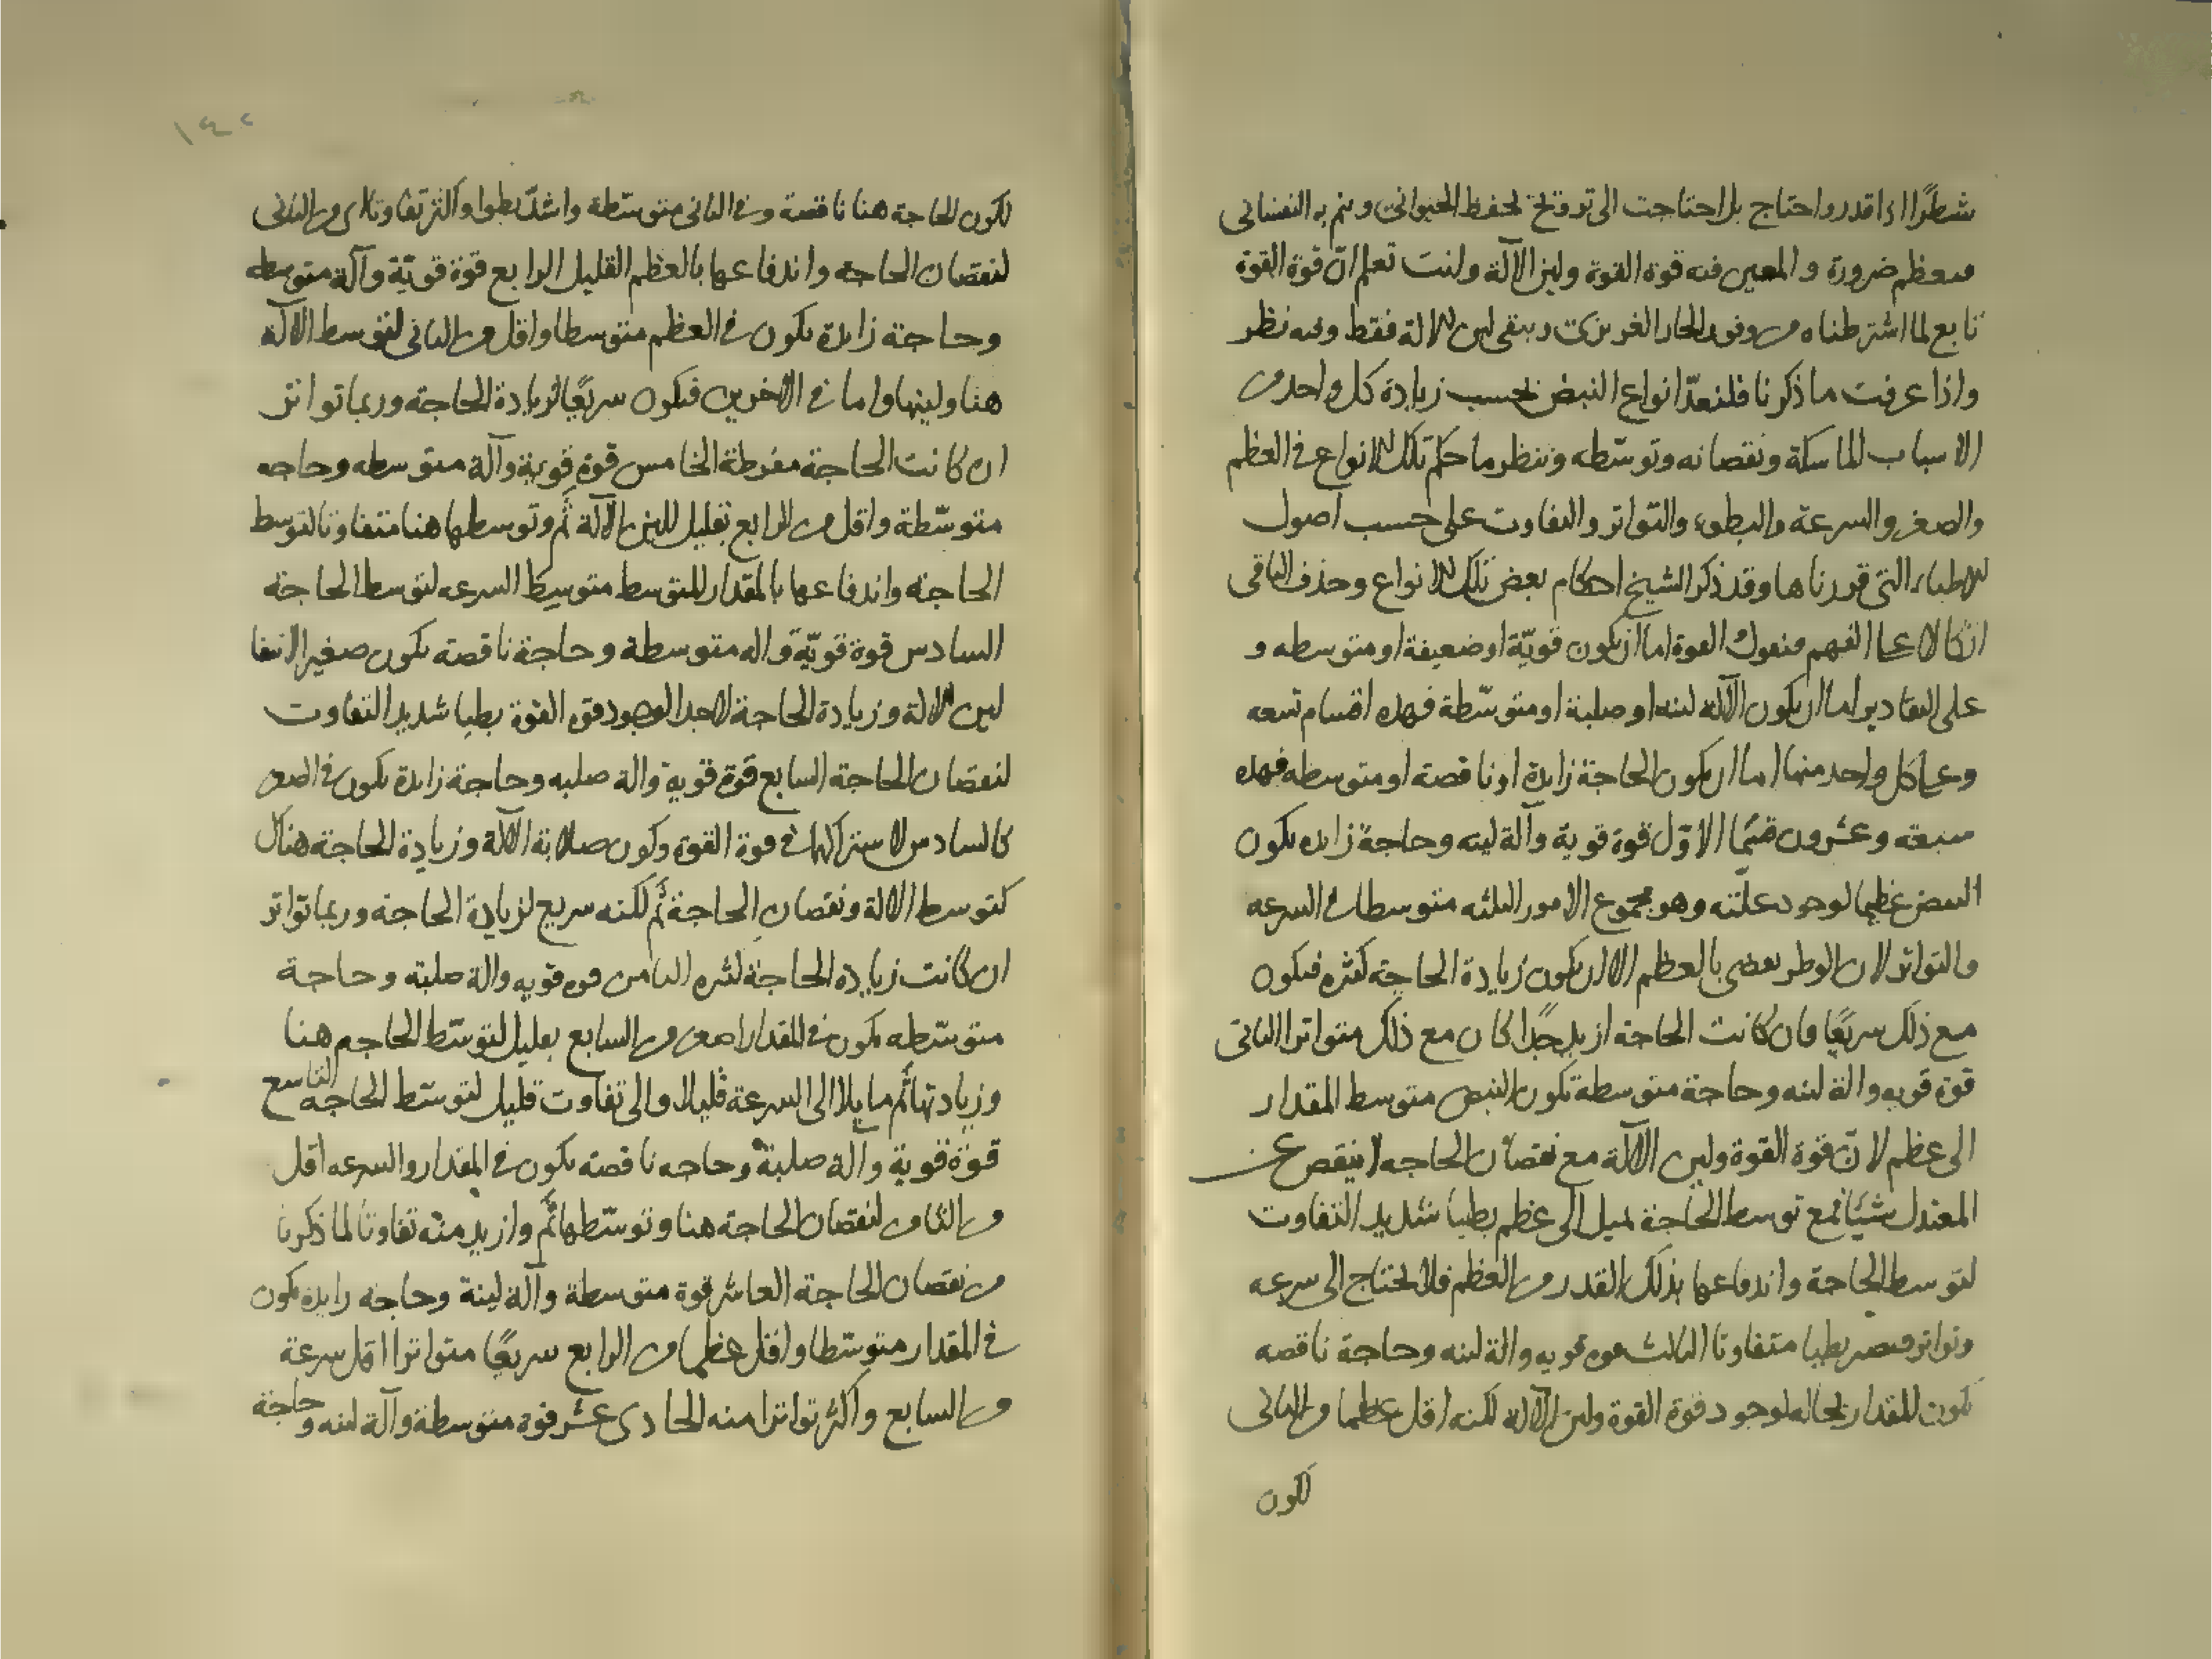 شطرًا اذا قدر واحتاج بل احتاجت الى تروتح لحفظ الحيوانى وىتم به النفسانى
معظم ضرورة و المعين فيه قوة القوة ولين الآلة وانت تعلم انّ قوة القوة
تابع لما اشترطناه من وفور الحار الغريزى ويبقى لين الالة فقط وفيه نظر
واذا عرفت ما ذكرنا فلنعدّ انواع النبض بحسب زيادة كل واحد من
الاسباب الماسكة ونقصانه وتوسّطه وننظر ما حكم تلك الانواع فى العظم
والصغر والسرعة والبطوء والتواتر والتفاوت على حسب اصول
الاطباء التى قررناها وقد ذكر الشيخ احكام بعض تلك الانواع وحذف الباقى
اتكالا على الفهم فنقول القوة اما ان يكون قويّة او ضعيفة او متوسطه و
على التقادير اما ان يكون الآلة لينه او صلبة او متوسّطة فهده اقسام تسعه
وعلى كل واحد منها اما ان يكون الحاجة زايدة او ناقصة او متوسطه فهده
سبعه وعشرون قسمًا الاوّل قوة قوية وآلة لينه وحاجة زايده يكون
النبض عظيما لوجود علّته وهو مجموع الامور الثلثه متوسطا فى السرعه
والتواتر لان الوطر يقضى بالعظم الا ان يكون زيادة الحاجة كثره فيكون
مع ذلك سريعًا فان كانت الحاجة ازيد جدًا كان مع ذلك متواترا الثانى
قوة قويه والة لينه وحاجة متوسطة يكون النبض متوسط المقدار
الى عظم لانّ قوة القوة ولين الآلة مع نقصان الحاجه لا ينقص عن
المعتدل شيًا فمع توسط الحاجة يميل الى عظم بطيا شديد التفاوت
لتوسط الحاجة واندفاعها بذلك القدر من العظم فلا يحتاج الى سرعه
وتواتر فيصير بطيا متفاوتا الثالث قوة قويه والة لينه وحاجة ناقصه
يكون المقدار بحاله لوجود قوة القوة ولين الآلة لكنه اقل عظما من الثانى
لكون
١٤٢
لكون الحاجة هنا ناقصة وفى الثانى متوسّطة واشدّ بطوا واكثر تفاوتا من الثانى
لنقصان الحاجه واندفاعها بالعظم القليل الرابع قوة قويّة وآلة متوسطه
وحاجة زايدة يكون فى العظم متوسطا واقل من الثانى لتوسط الآلة
هنا ولينها واما فى الآخرين فيكون سريعًا لزيادة الحاجة وربما تواتر
ان كانت الحاجة مفرطة الخامس قوة قوية وآلة متوسطه وحاجه
متوسّطة واقل من الرابع بقليل للين الآلة ثَم وتوسطها هنا متفاوتا لتوسط
الحاجة واندفاعها بالمقدار المتوسط متوسط السرعه لتوسط الحاجة
السادس قوة قويّة واله متوسطة وحاجة ناقصة يكون صغير الانتفا
لين الالة وزيادة الحاجة لاجد الوجود قوة القوة بطيا شديد التفاوت
لنقصان الحاجة السابع قوة قوية والة صلبه وحاجة زايدة يكون فى الصغر
كالسادس لاشتراكهما فى قوة القوة وكون صلابة الآلة وزيادة الحاجة هناك
كتوسط الالة ونقصان الحاجة ثَم لكنه سريع لزيادة الحاجة وربما تواتر
ان كانت زيادة الحاجة كثره الثامن قوه قويه والة صلبة وحاجة
متوسّطه يكون فى المقدار اصغر من السابع بقليل لتوسّط الحاجه هنا
وزيادتها ثَم مايلا الى السرعة قليلا والى تفاوت قليل لتوسّط الحاجه التاسع
قوة قوية وآلة صلبة وحاجه ناقصه يكون فى المقدار والسرعه اقل
من الثامن لنقصان الحاجة هنا وتوسّطها ثَم وازيد منه تفاوتا لما ذكرنا
من نقصان الحاجة العاشر قوة متوسطة وآلة لينة وحاجه زايدة يكون
فى المقدار متوسّطا واقل عظما من الرابع سريعًا متواترا اقل سرعة
من السابع واكثر تواترا منه الحادى عشر قوة متوسطة وآلة لينه وحاجة